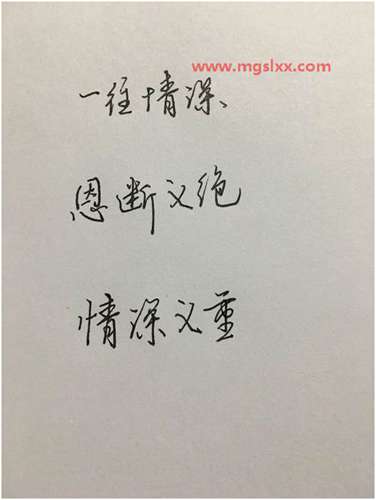 www.mgslxx.com
一往情深、
恩断义绝
情深义重